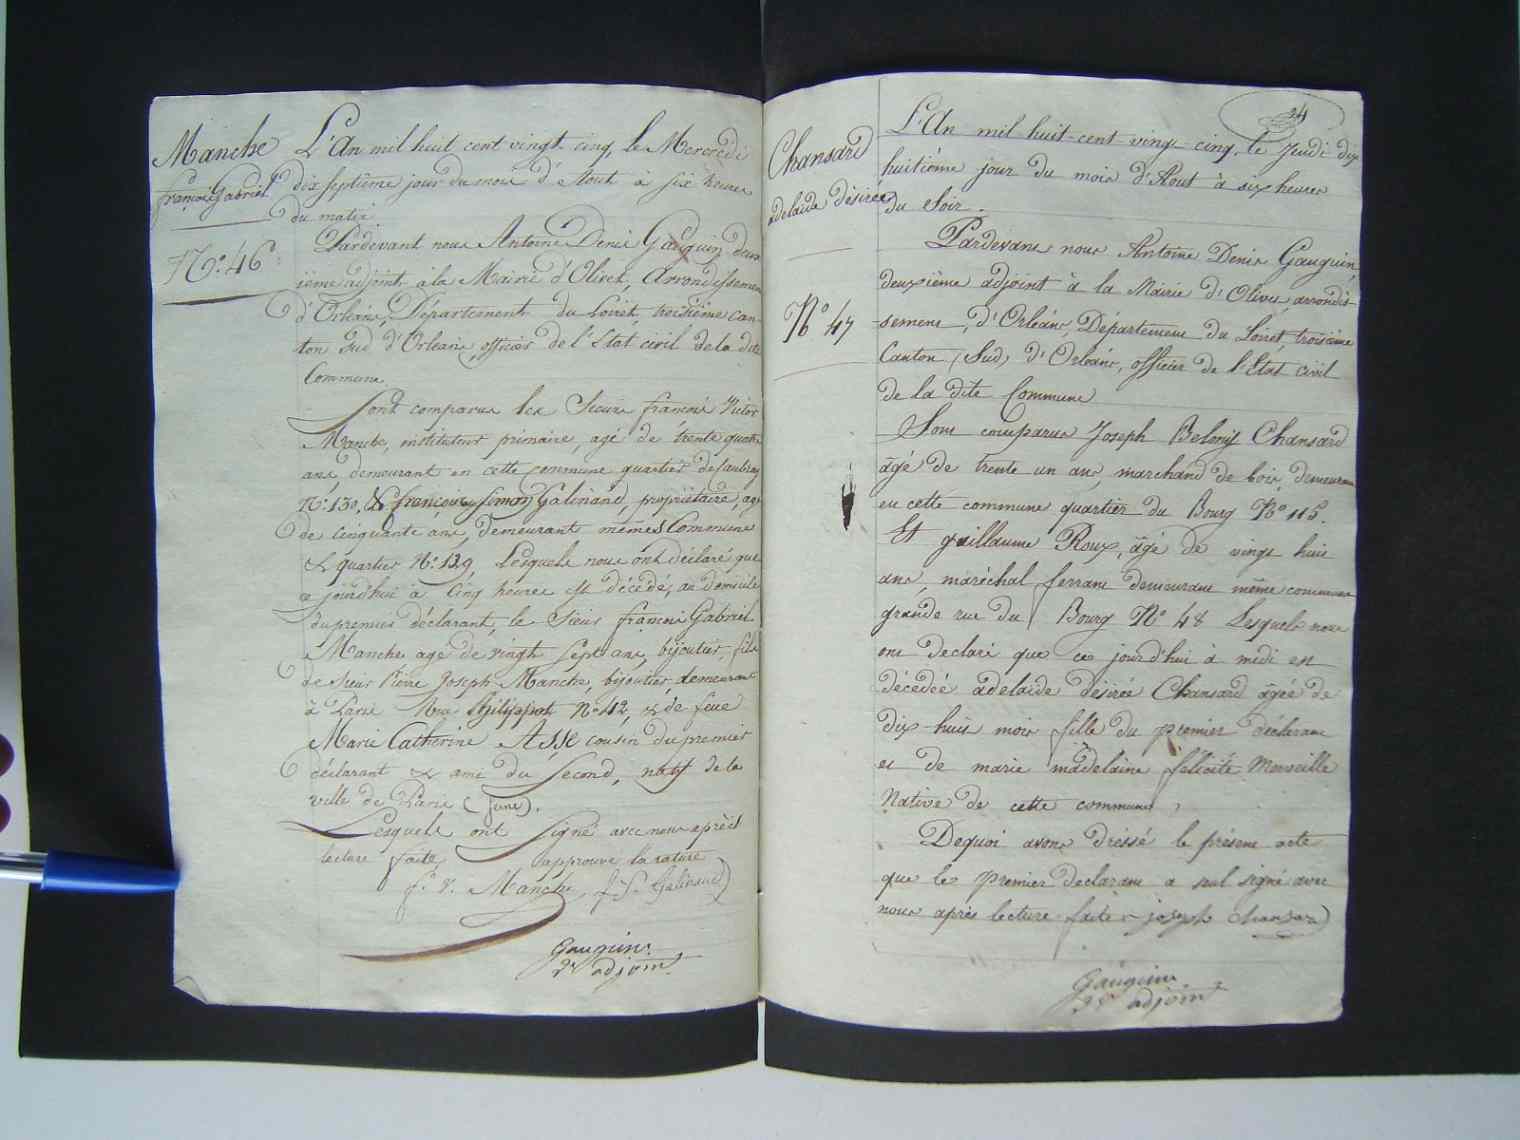 Manche
françois Gabriel
N.º 46
L'An mil huit cent vingt cinq, le Mercredi
dix septième jour du mois d'Aout à six heures
du matin.
Pardevant nous Antoine Denis Gauguin, deux
ième adjoint à la Mairie d'Olivet, Arrondissement
d'Orléans, Département du Loiret, troisième can-
ton Sud d'Orleans, officier de l'Etat civil de la dite
Commune.
Sont comparus les Sieurs françois Victor
Manche, instituteur primaire, agé de trente quatre
ans, demeurant en cette commune quartier de
Nº. 130, & françois Simon Galinand, propriétaire, agé
de Cinquante ans, demeurant mêmes Commune
& quartier Nº. 139 Lesquels nous ont déclaré que
ce jourd'hui à Cinq heures est décédé, au domicile
du premier déclarant, le Sieur françois Gabriel
Manche agé de vingt Sept ans, bijoutier, fils
de Sieur Pierre Joseph Manche, bijoutier, demeurant
à Paris Rue Phelippot Nº 42, & de feue
Marie Catherine Asse cousin du premier
déclarant & ami du Second, natif de la
ville de Paris (Seine).
Lesquels ont Signé avec nous après
lecture faite, approuvé la rature
f. V. Manche, f. S. Galinand
Gauguin
2e adjoint
24
Chansard
adelaide désirée
Nº 47
L'An mil huit-cent-vingt-cinq, le Jeudi dix
huitième jour du mois d'Aout à six heures
du Soir.
Pardevant nous Antoine Denis Gauguin,
deuxième adjoint à la Mairie d'Olivet, arrondis-
sement d'Orléans, Département du Loiret, troisième
Canton (Sud) d'Orléans, officier de l'Etat civil
de la dite Commune
Sont comparus Joseph Belonis Chansard
âgé de trente un ans, marchand de bois, demeurant
en cette commune quartier du Bourg Nº 115.
Et guillaume Roux, âgé de vingt huit
ans, maréchal ferrant demeurant même commune
grande rue du Bourg Nº 48 Lesquels nous
ont declaré que ce jourd'hui à midi est
décédée adelaïde désirée Chansard âgée de
dix-huit mois fille du premier déclarant
et de marie madelaine félicité Merveille
Native de cette commune,
Dequoi avons dressé le présent acte
que le premier declarant a seul signé avec
nous après lecture faite joseph Chansard
Gauguin
2e adjoint